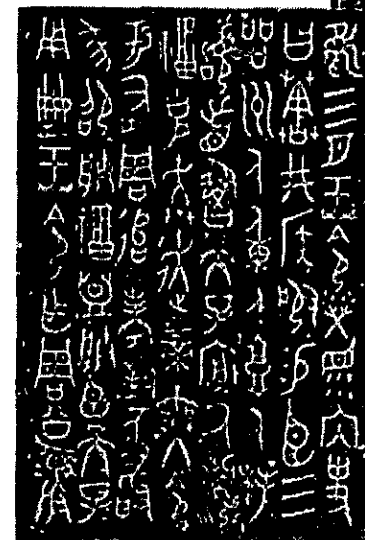 隹三月王令𤇾眔內史
曰𦱩井侯服易臣三
品州人重人𩫖人拜
稽首魯天子𢓊氒瀕
福克奔走上下帝無冬令
于又周追考對不敢
㒸卲朕福盟朕臣天子
用典王令乍周公彝